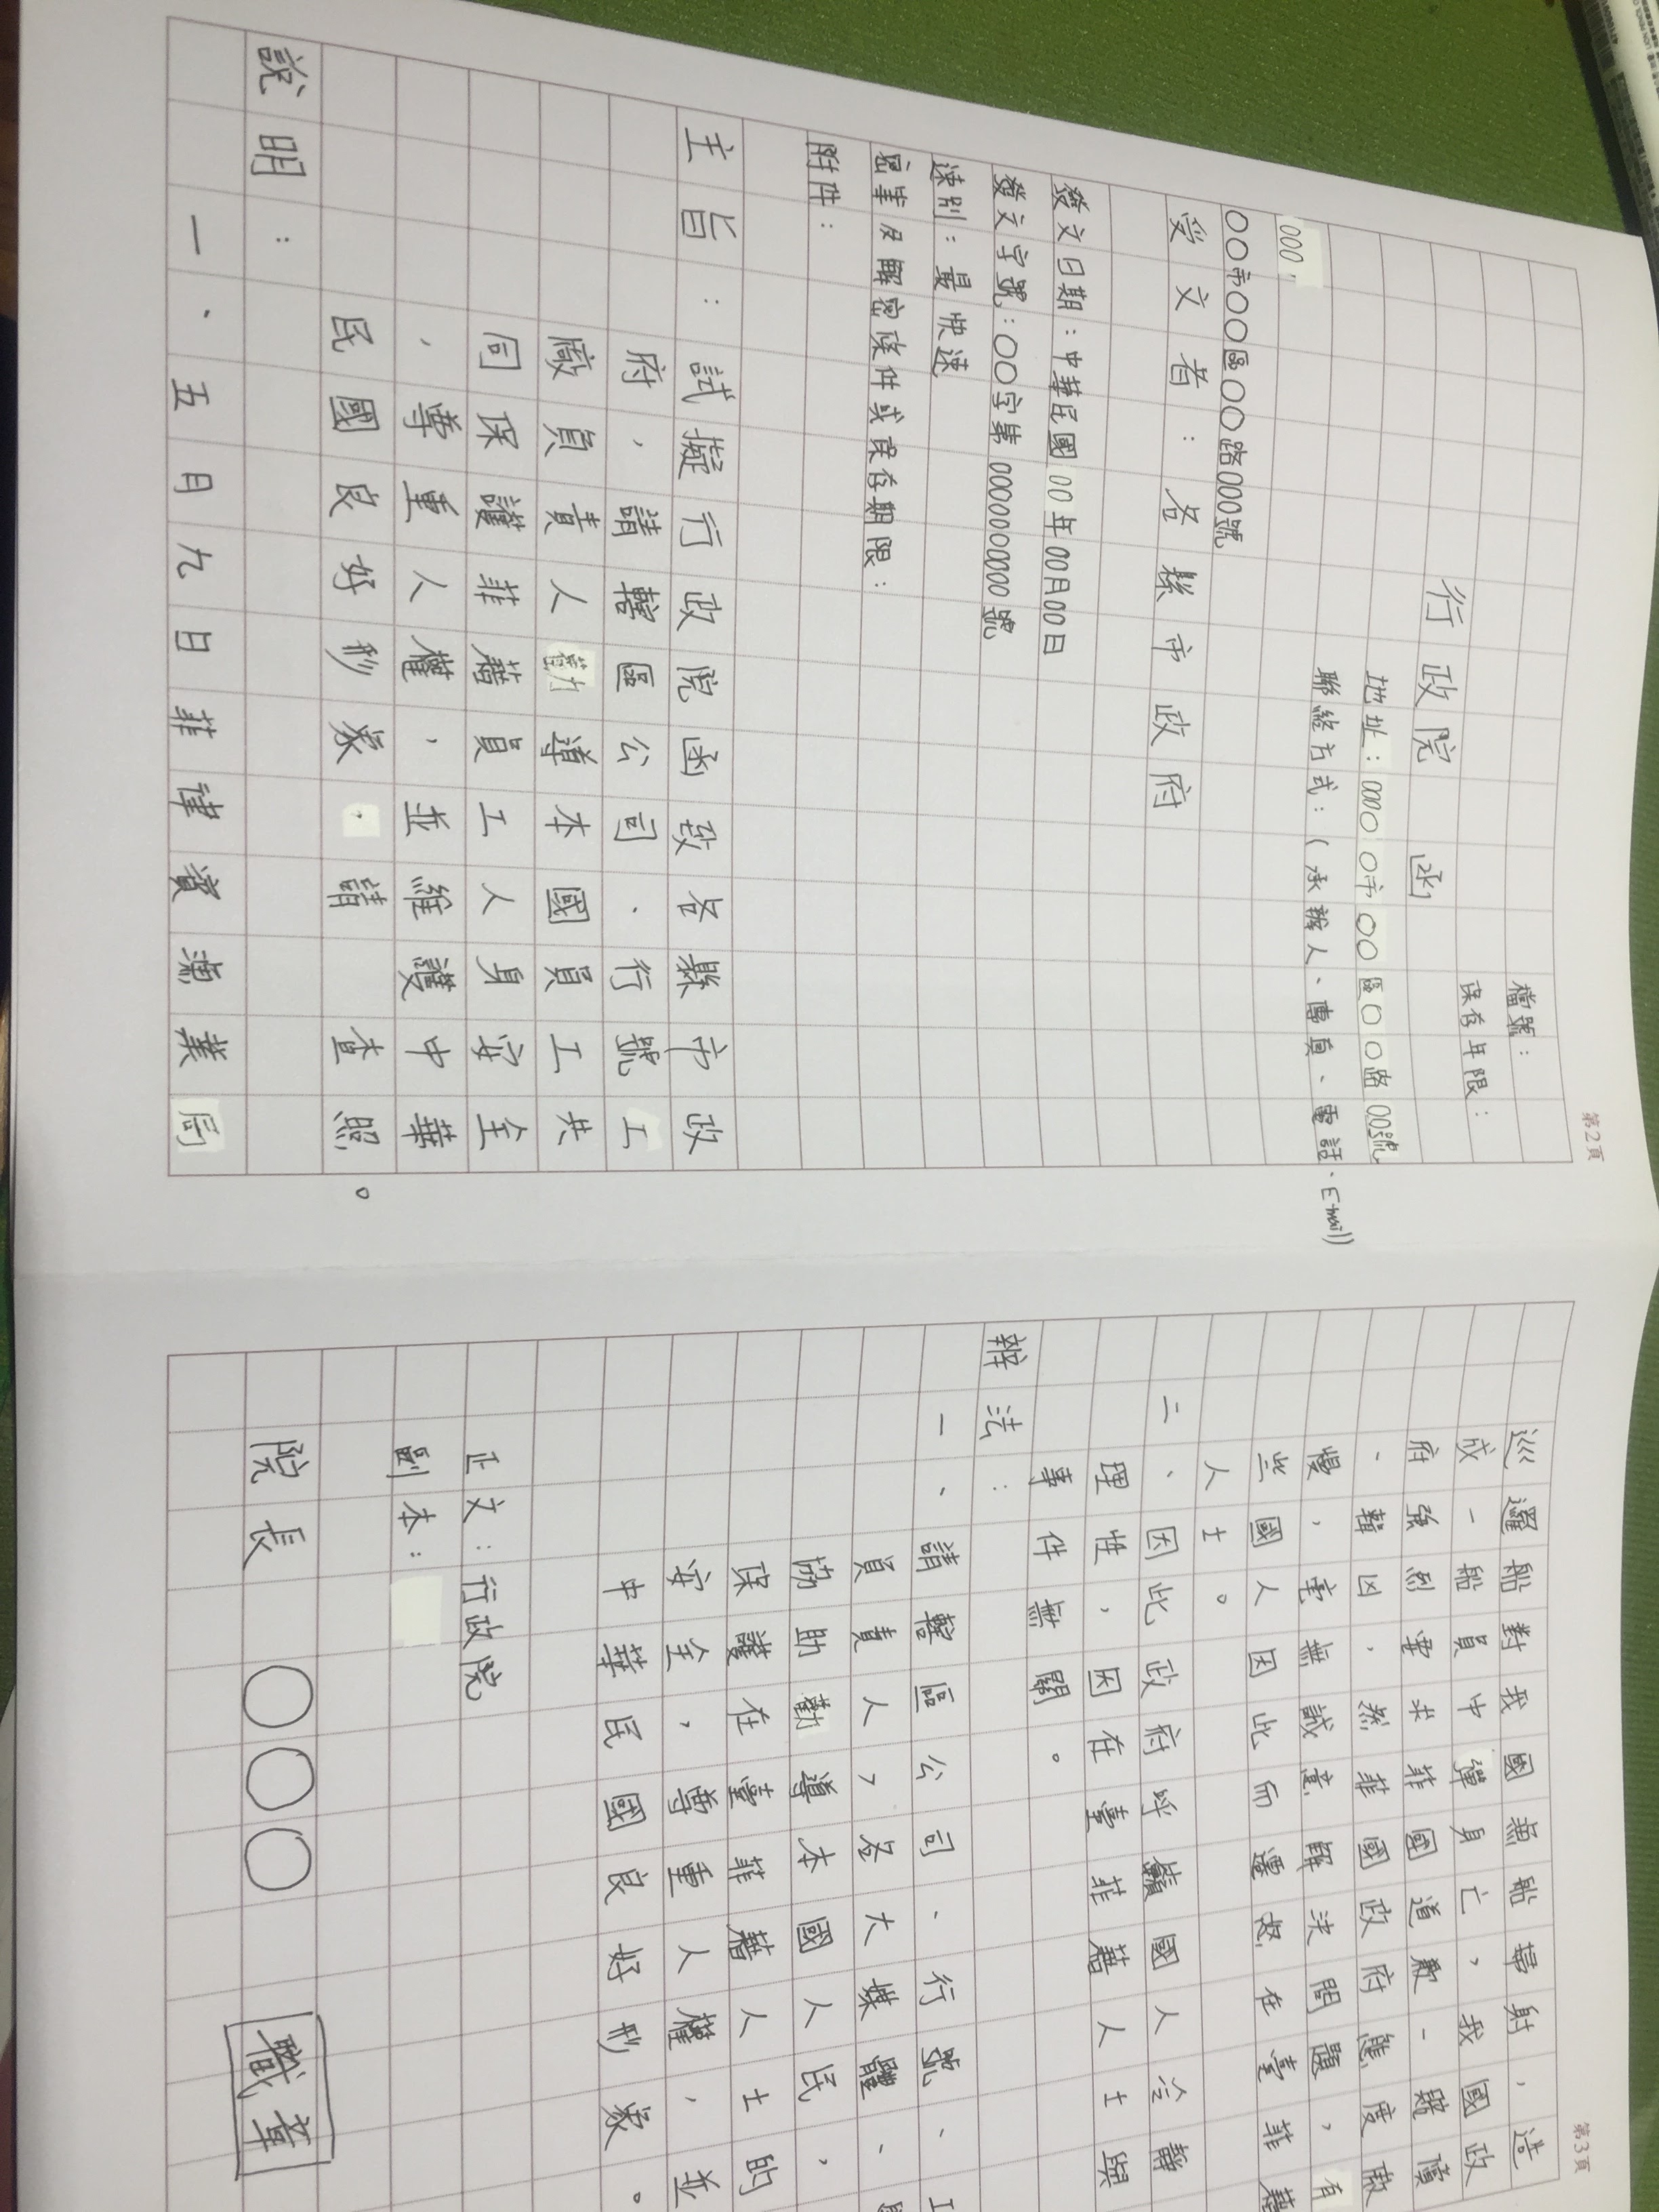 第2頁
檔號：
保存年限：
行政院 函
地址：000 0市00區00路00號
聯絡方式：(承辦人、傳真、電話、E-mail)
000
00市00區00路000號
受文者：各縣市政府
發文日期：中華民國00年00月00日
發文字號：00字第0000000000號
速別：最快速
密等及解密條件或保存期限：
附件：
主旨：試擬行政院函致各縣市政
府，請轄區公司、行號工
廠負責人勸導本國員工共
同保護菲藉員工人身安全
，尊重人權，並維護中華
民國良好形象，請查照。
說明：
一、五月九日菲律賓漁業局
第3頁
巡邏船對我國漁船掃射，造
成一船員中彈身亡，我國政
府強烈要求菲國道歉、賠償
、緝凶，然菲國政府態度傲
慢，毫無誠意解決問題，有
些國人因此而遷怒在臺菲藉
人士。
二、因此政府呼籲國人冷靜
理性，因在臺菲藉人士與
事件無關。
辦法：
一、請轄區公司、行號、工
員負責人，各大媒體、
協助勸導本國人民，
保護在臺菲藉人士的
安全，尊重人權，並
中華民國良好形象。
正文：行政院
副本：
院長 〇〇〇 職章